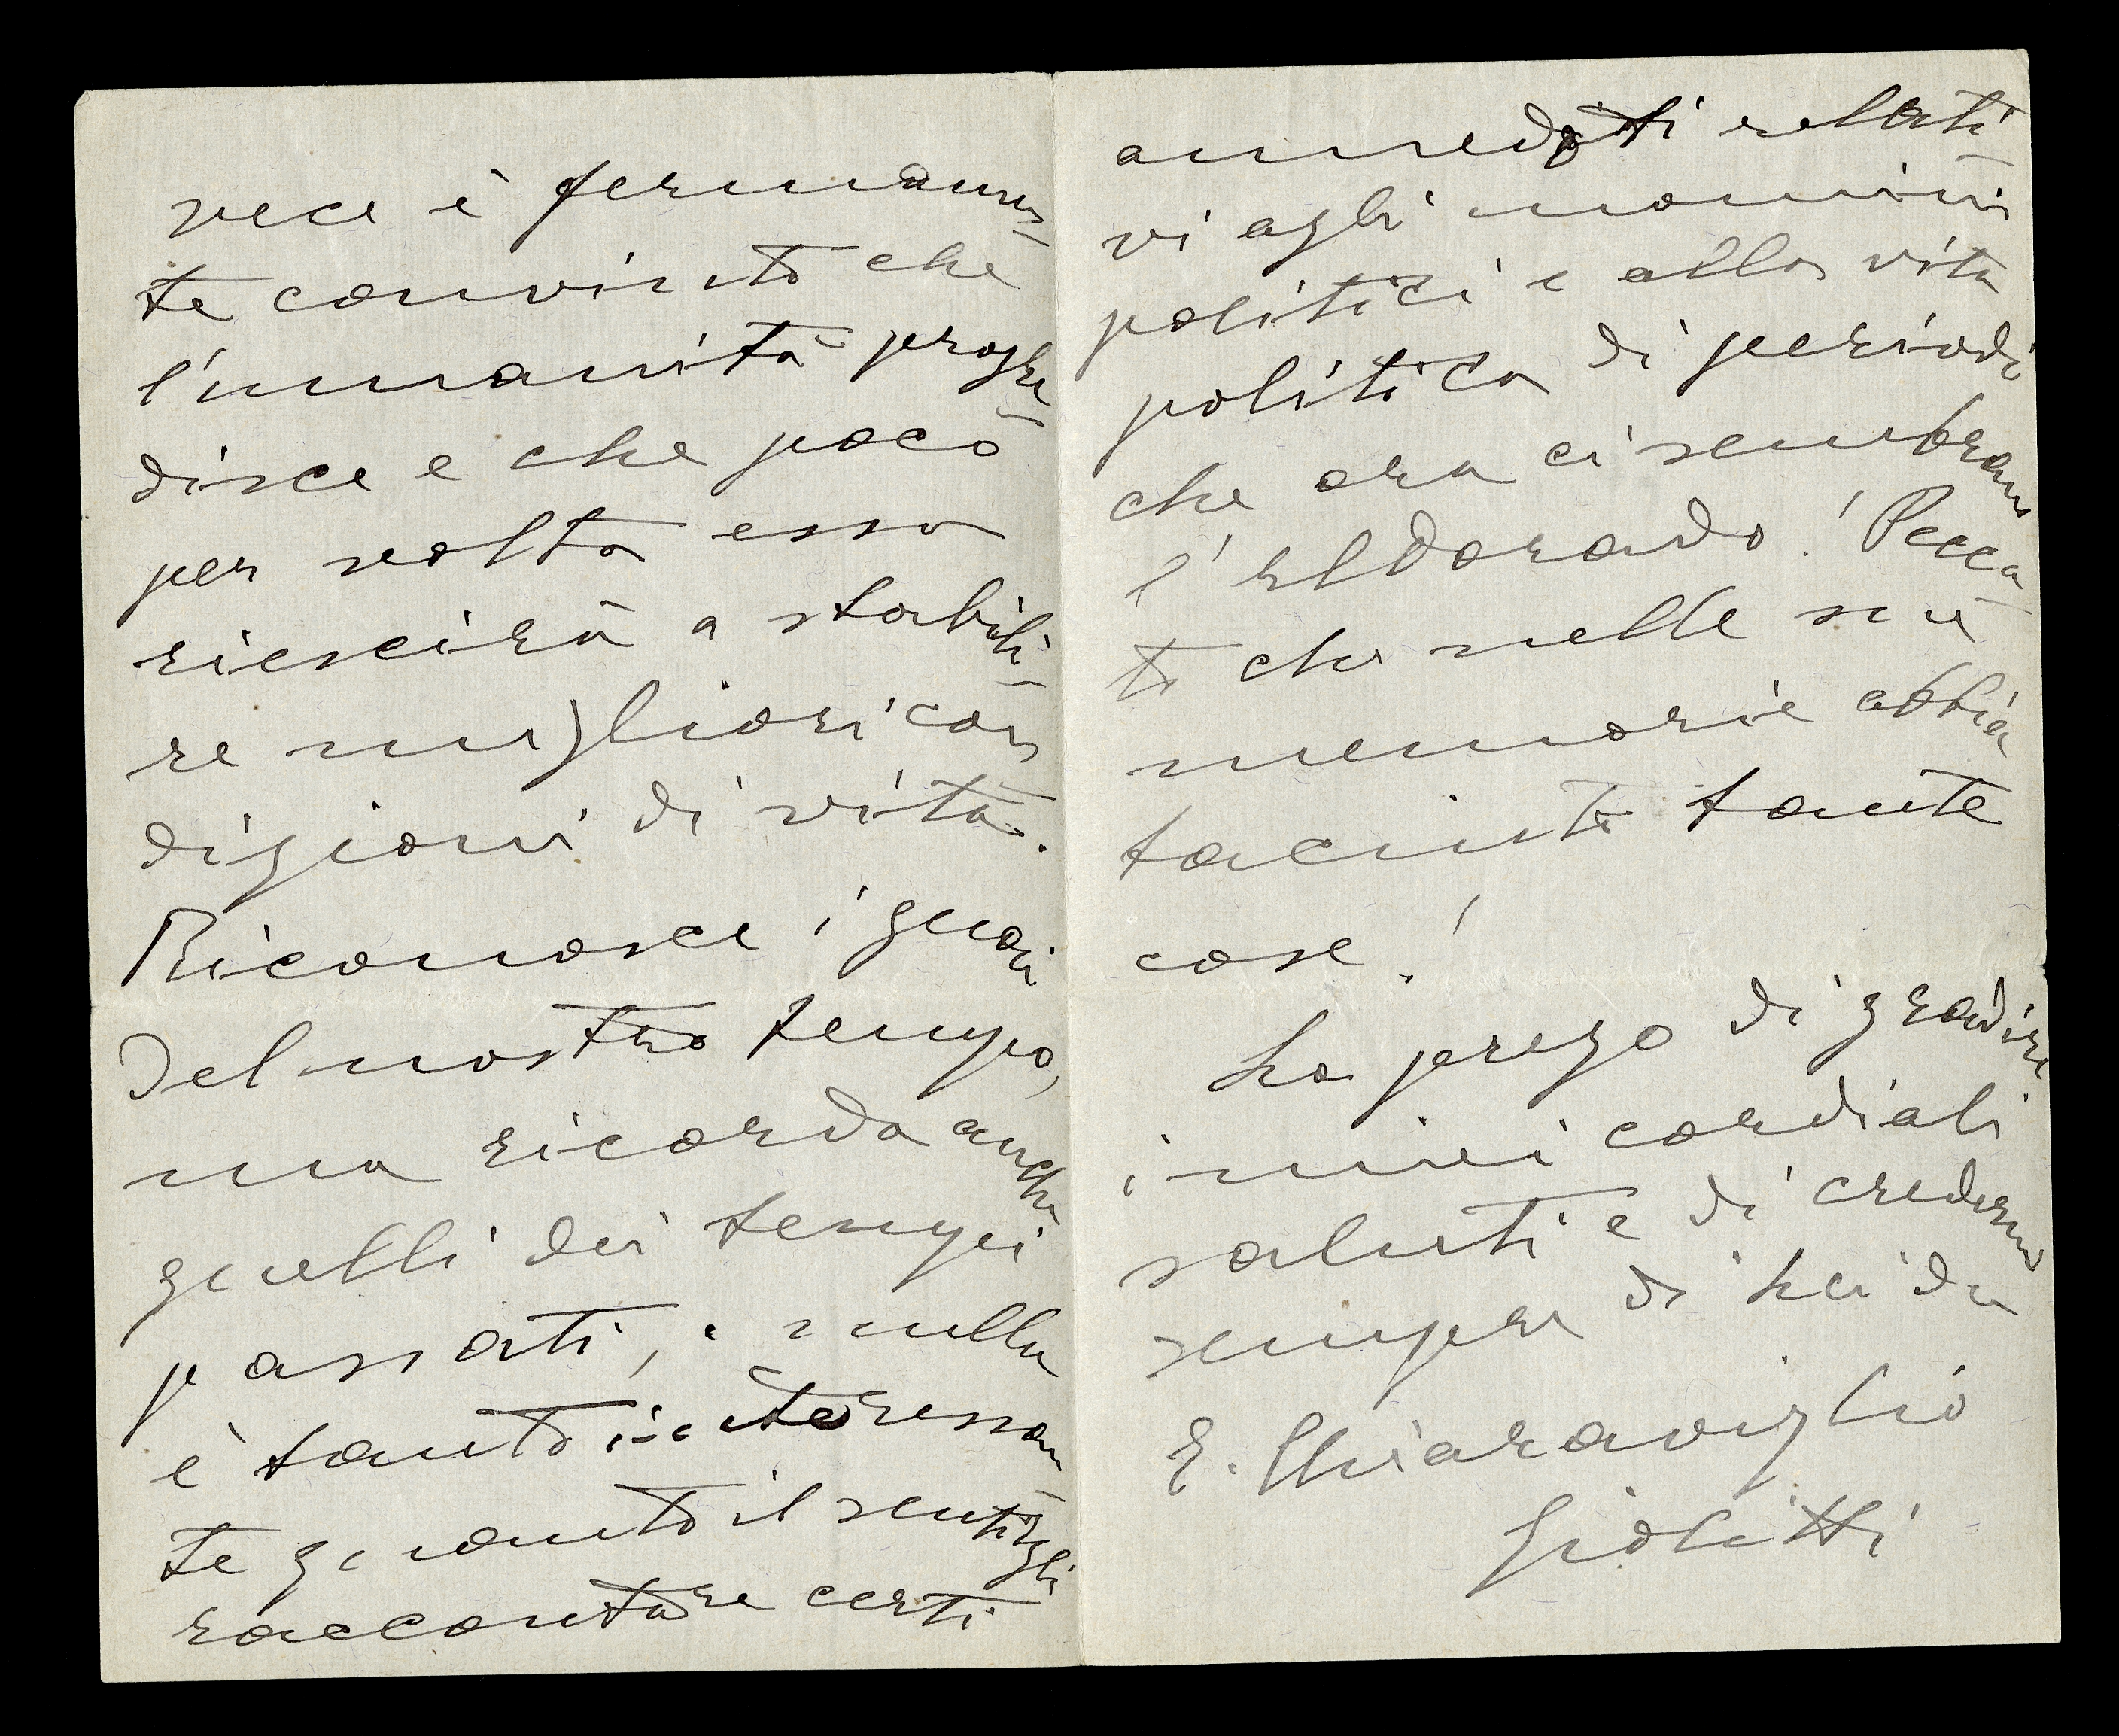 vece è fermamen-
te convinto che
l'umanità progre-
disce e che poco
per volta essa
riescirà a stabili-
re migliori con-
dizioni di vita.
Riconosce i guai
del nostro tempo,
ma ricorda anche
quelli dei tempi
passati, e nulla
è tanto interessan-
te quanto il sentirgli
raccontare certi
anneddoti relati-
vi agli uomini
politici e alla vita
politica di periodi
che ora ci sembrano
l'eldorado! Pecca-
to che nelle sue
memorie abbia
taciuto tante
cose!
La prego di gradire
i miei cordiali
saluti e di credermi
sempre di Lei du
E. Chiaraviglio
Giolitti